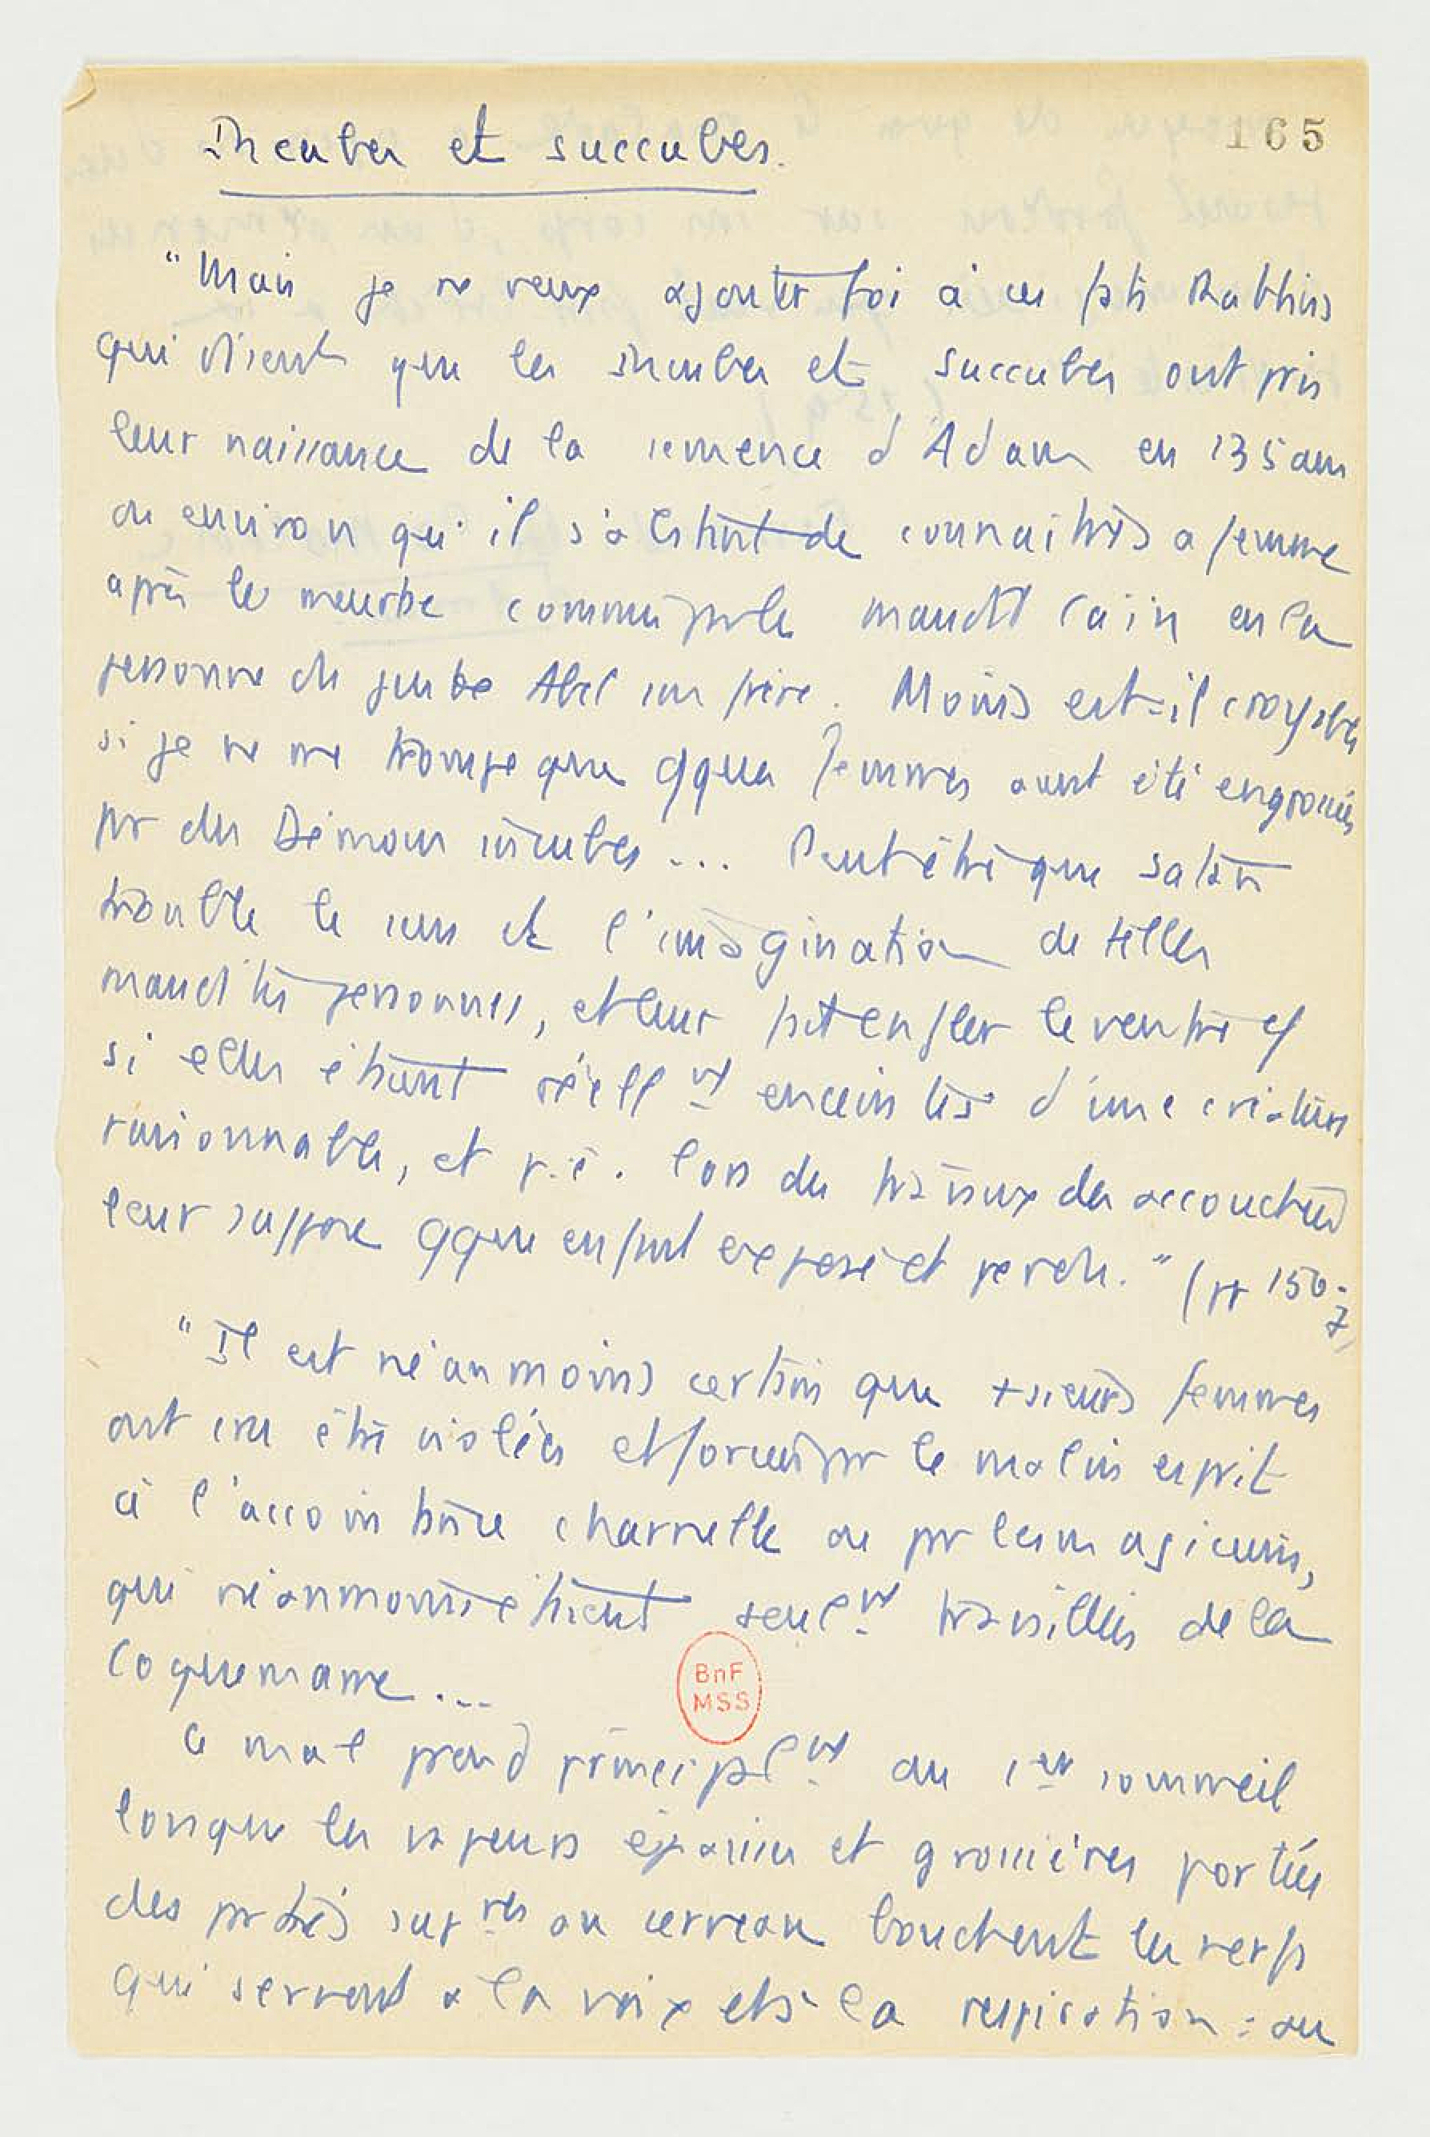 165
Incubes et succubes.
"Mais je ne veux ajouter foi à ces Rabbins
qui disent que les incubes et succubes ont pris
leur naissance de la semence d'Adam en 135 ans
ou environ qu'il s'abstint de connaitre sa femme
après le meurtre commis par le maudit Caïn en la
personne du juste Abel son frère. Moins est-il croyable
si je ne me trompe que qques femmes aient été engrossées
pr des Démons incubes ... Peut être que Satan
trouble le sens et l'imagination de telles
maudites personnes, et leur fait enfler le ventre
si elles étaient réellt enceintes d'une créature
raisonnable, et p.ê. lors du travaux des accouchées
leur suppose qque enfant exposé et perdu." (pp 156-
7)
"Il est néanmoins certain que +sieurs femmes
ont cru être violées et forcées pr le malin esprit
à l'accointance charnelle ou pr les magiciens,
qui néanmoins étaient seult travaillées de la
Coquemarre...
Ce mal prend principalt au 1er sommeil
lorsque les vapeurs épaisses et grossières portées
des parties supres au cerveau bouchent les nerfs
qui servent à la voix et à la respiration : ou
BnF
MSS